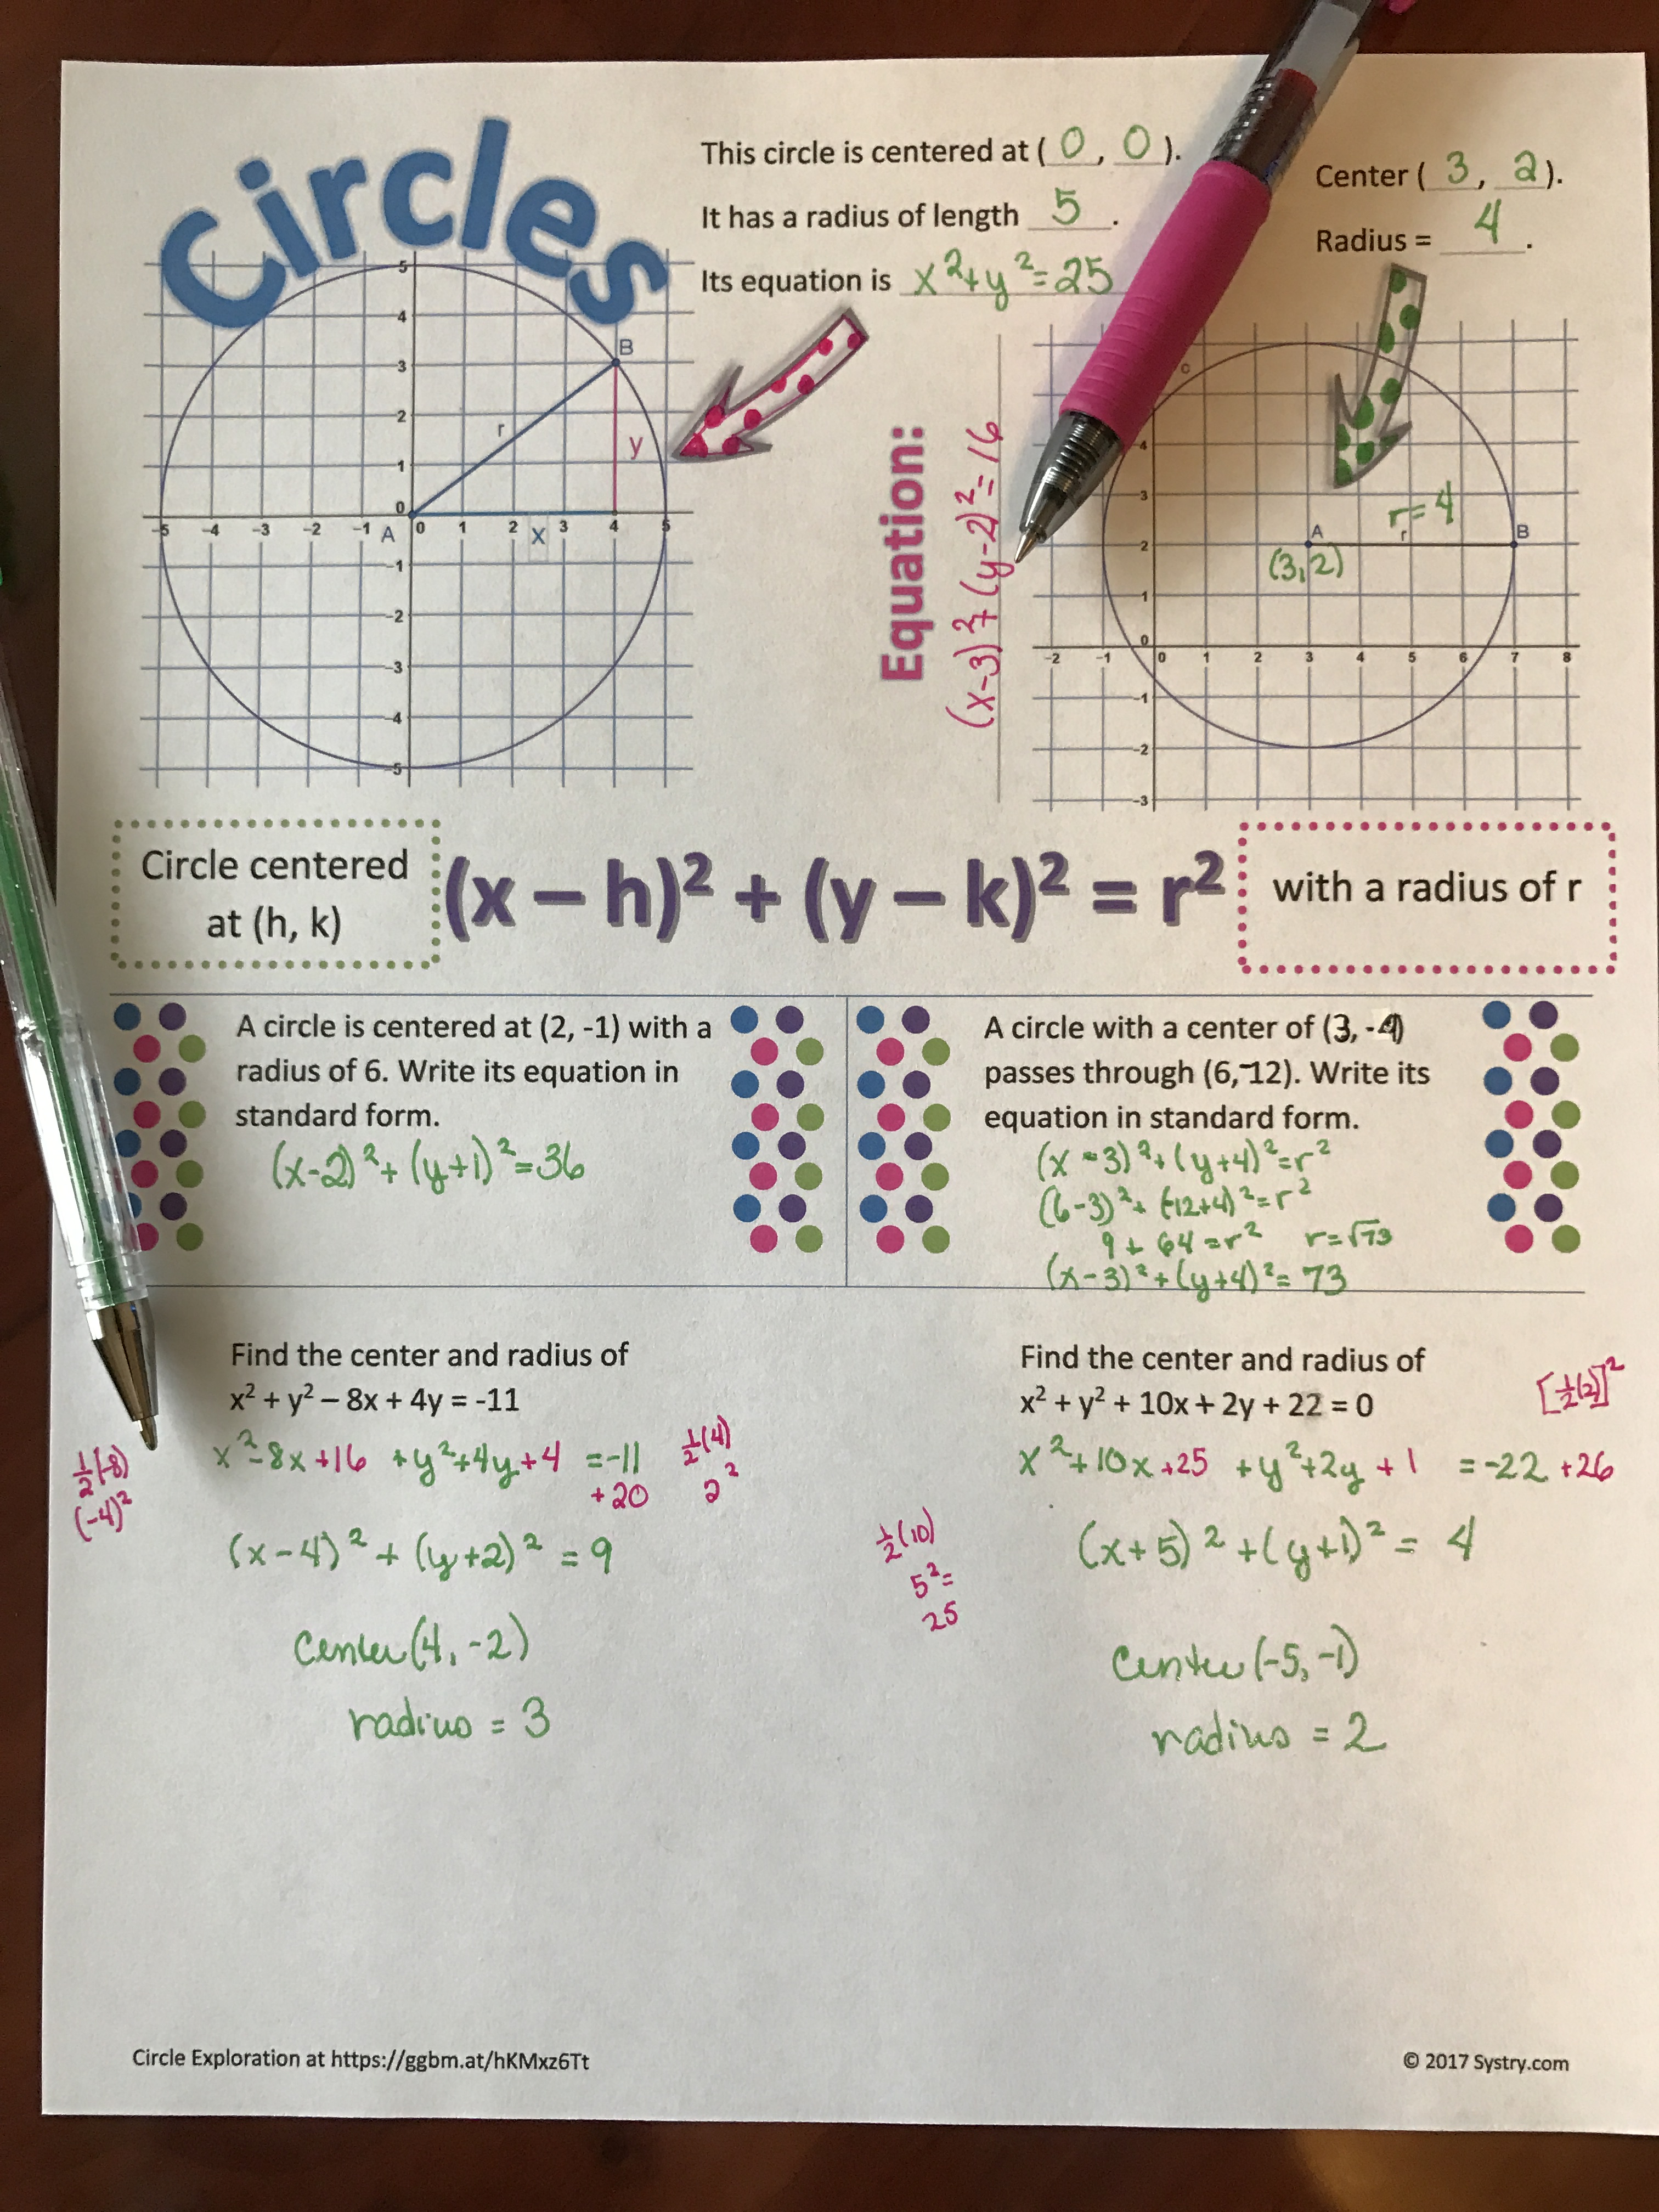 Circles
This circle is centered at ( 0 , 0 ).
It has a radius of length 5 .
Its equation is x²+y²=25
Center ( 3, 2 ).
Radius = 4 .
5
4
3
2
1
0
-5 -4 -3 -2 -1 A 0 1 2 x 3 4 5
-1
-2
-3
-4
-5
B
r
y
Equation:
(x-3)²+(y-2)²=16
c
4
3
r=4
2
A r B
(3,2)
1
0
-2 -1 0 1 2 3 4 5 6 7 8
-1
-2
-3
Circle centered
at (h, k)
(x – h)² + (y – k)² = r²
with a radius of r
A circle is centered at (2, -1) with a
radius of 6. Write its equation in
standard form.
(x-2)²+(y+1)²=36
A circle with a center of (3, -4)
passes through (6,-12). Write its
equation in standard form.
(x-3)²+(y+4)²=r²
(6-3)²+(-12+4)²=r²
9+64=r² r=√73
(x-3)²+(y+4)²=73
Find the center and radius of
x² + y² – 8x + 4y = -11
x²-8x+16 +y²+4y+4 =-11
+20
½(-8)
(-4)²
½(4)
2²
(x-4)²+(y+2)²=9
center(4,-2)
radius=3
Find the center and radius of
x² + y² + 10x + 2y + 22 = 0
[½(2)]²
x²+10x+25 +y²+2y+1 =-22+26
½(10)
5²=
25
(x+5)²+(y+1)²=4
center(-5,-1)
radius=2
Circle Exploration at https://ggbm.at/hKMxz6Tt
© 2017 Systry.com